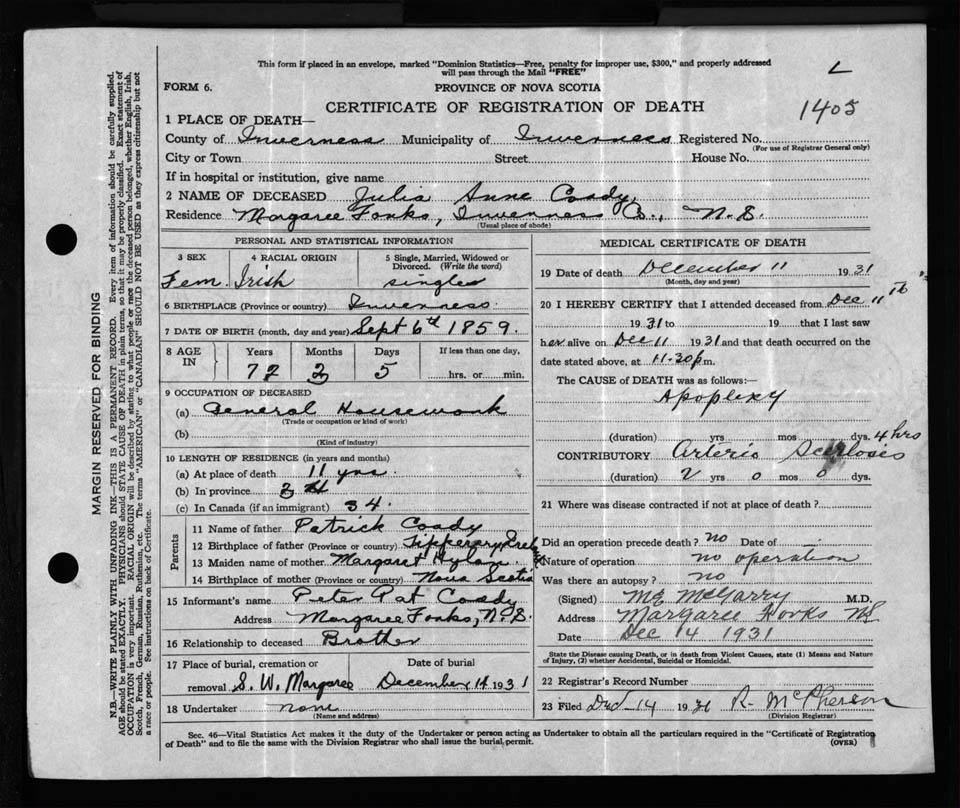 This form if placed in an envelope, marked "Dominion Statistics—Free, penalty for improper use, $300," and properly addressed
will pass through the Mail "FREE"
L
FORM 6.
PROVINCE OF NOVA SCOTIA
CERTIFICATE OF REGISTRATION OF DEATH
1405
1 PLACE OF DEATH—
County of Inverness Municipality of Inverness Registered No.
(For use of Registrar General only)
City or Town Street House No.
If in hospital or institution, give name
2 NAME OF DECEASED Julia Anne Coady
Residence Margaree Forks, Inverness Co., N.S.
(Usual place of abode)
PERSONAL AND STATISTICAL INFORMATION
3 SEX 4 RACIAL ORIGIN 5 Single, Married, Widowed or Divorced. (Write the word)
Fem. Irish single
6 BIRTHPLACE (Province or country) Inverness.
7 DATE OF BIRTH (month, day and year) Sept 6th 1859.
8 AGE IN Years Months Days If less than one day,
72 3 5 hrs. or min.
9 OCCUPATION OF DECEASED
(a) General Housework
(Trade or occupation or kind of work)
(b)
(Kind of industry)
10 LENGTH OF RESIDENCE (in years and months)
(a) At place of death 11 yrs.
(b) In province 34
(c) In Canada (if an immigrant) 34.
Parents
11 Name of father Patrick Coady
12 Birthplace of father (Province or country) Tipperary
13 Maiden name of mother Margaret
14 Birthplace of mother (Province or country) Nova Scotia
15 Informant's name Peter Pat Coady
Address Margaree Forks, N.S.
16 Relationship to deceased Brother
17 Place of burial, cremation or removal S. W. Margaree Date of burial December 14 1931
18 Undertaker none
(Name and address)
MEDICAL CERTIFICATE OF DEATH
19 Date of death December 11 1931
(Month, day and year)
20 I HEREBY CERTIFY that I attended deceased from Dec 11th
1931 to 19 that I last saw
her alive on Dec 11 1931 and that death occurred on the
date stated above, at 11.30 p.m.
The CAUSE OF DEATH was as follows:—
Apoplexy
(duration) yrs mos dys. 4 hrs
CONTRIBUTORY Arterio Sclerosis
(duration) 2 yrs 0 mos 0 dys.
21 Where was disease contracted if not at place of death?
Did an operation precede death? no Date of
Nature of operation no operation
Was there an autopsy? no
(Signed) McGarry M.D.
Address Margaree Forks NS
Date Dec 14 1931
State the Disease causing Death, or in death from Violent Causes, state (1) Means and Nature of Injury, (2) whether Accidental, Suicidal or Homicidal.
22 Registrar's Record Number
23 Filed Dec 14 1931 R. McPherson
(Division Registrar)
Sec. 46—Vital Statistics Act makes it the duty of the Undertaker or person acting as Undertaker to obtain all the particulars required in the "Certificate of Registration
of Death" and to file the same with the Division Registrar who shall issue the burial permit.
(OVER)
MARGIN RESERVED FOR BINDING
N.B.—WRITE PLAINLY WITH UNFADING INK—THIS IS A PERMANENT RECORD. Every item of information should be carefully supplied.
AGE should be stated EXACTLY. PHYSICIANS should STATE CAUSE OF DEATH in plain terms, so that it may be properly classified. Exact statement of
OCCUPATION is very important. RACIAL ORIGIN will be described by stating to what people or race the deceased person belonged, whether English, Irish,
Scotch, French, German, Russian, Ruthenian, etc. The terms "AMERICAN" or "CANADIAN" SHOULD NOT BE USED as they express citizenship but not
a race or people. See instructions on back of Certificate.